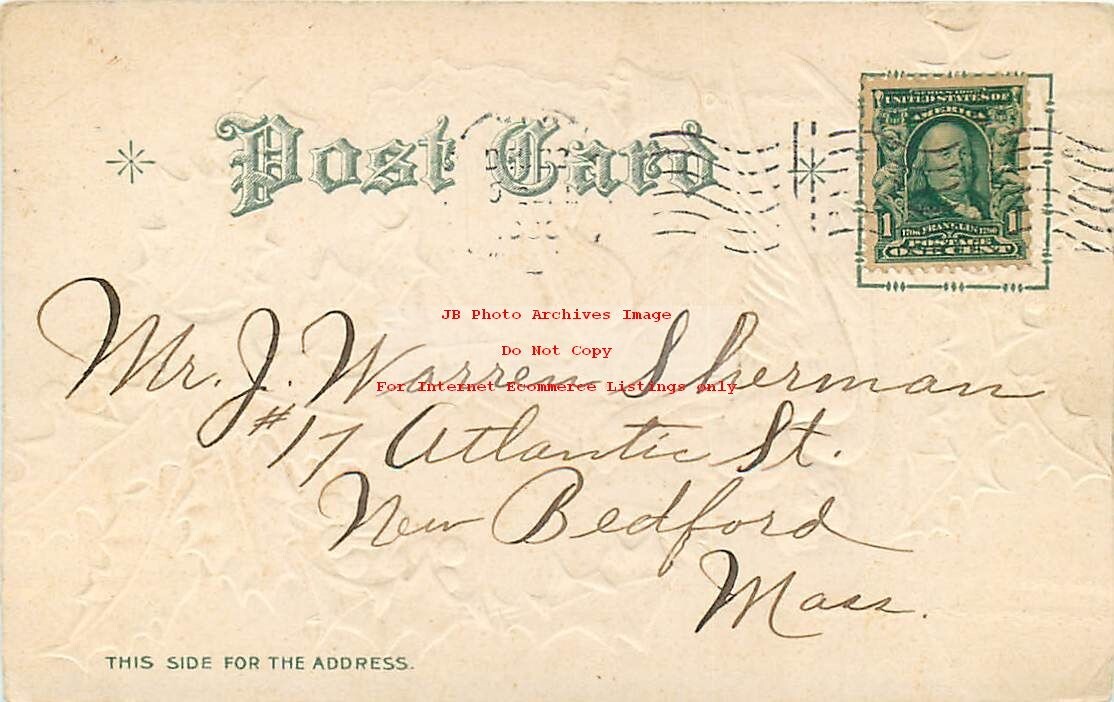 Post Card
SERIES 1902
UNITED STATES OF
AMERICA
1 1
1706 FRANKLIN 1790
POSTAGE
ONE CENT
JB Photo Archives Image
Do Not Copy
For Internet Ecommerce Listings only
Mr. J. Warren Sherman
#17 Atlantic St.
New Bedford
Mass.
THIS SIDE FOR THE ADDRESS.